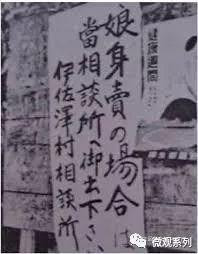 娘身賣の場合は
當相談所へ御出下さい
伊佐澤村相談所
健康週間
微观系列